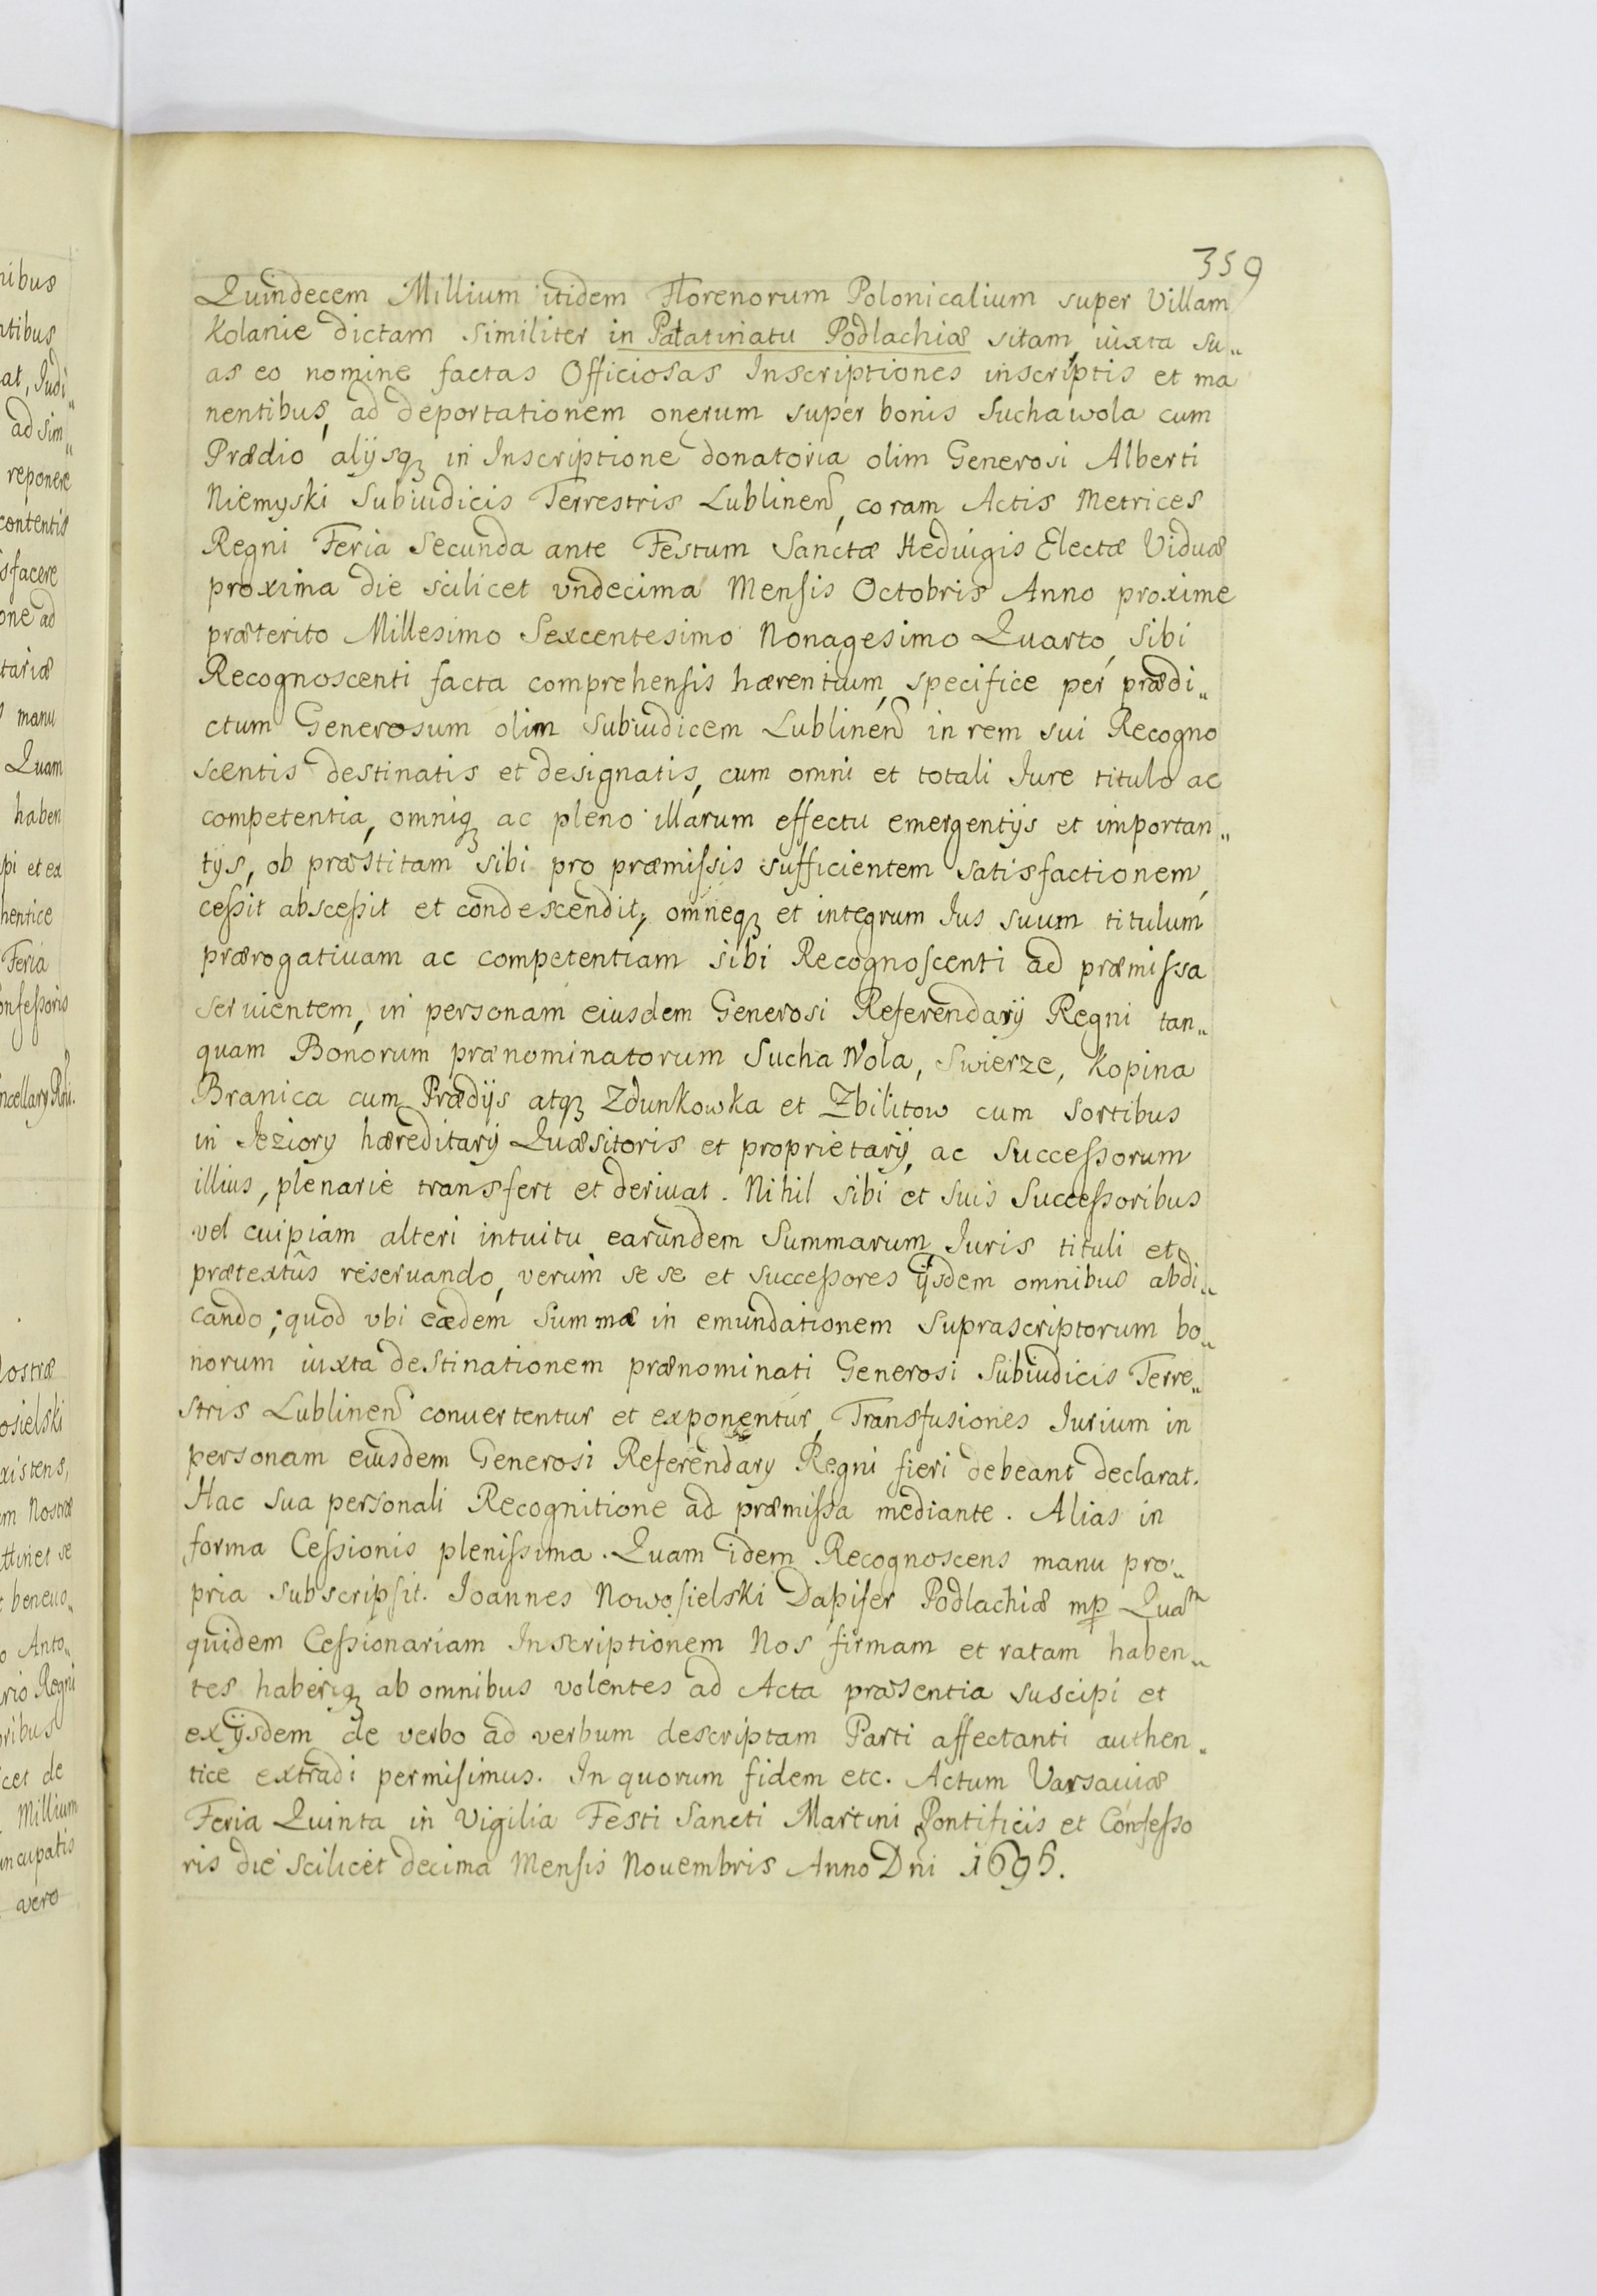 359
Quindecem Millium itidem Florenorum Polonicalium super Villam
Kolanie dictam similiter in Palatinatu Podlachiæ sitam, iuxta su„
as eo nomine factas Officiosas Inscriptiones inscriptis et ma
nentibus, ad deportationem onerum super bonis Suchawola cum
Prædio alijsq3 in Inscriptione donatoria olim Generosi Alberti
Niemyski Subiudicis Terrestris Lublinen, coram Actis Metrices
Regni Feria Secunda ante Festum Sanctæ Heduigis Electæ Viduæ
proxima die scilicet vndecima Mensis Octobris Anno proxime
præterito Millesimo Sexcentesimo Nonagesimo Quarto, sibi
Recognoscenti facta comprehensis hærentium, specifice per prædi„
ctum Generosum olim Subiudicem Lublinen in rem sui Recogno
scentis destinatis et designatis, cum omni et totali Iure titulo ac
competentia, omniq3 ac pleno illarum effectu emergentijs et importan„
tijs, ob præstitam sibi pro præmissis sufficientem satisfactionem,
cessit abscessit et condescendit, omneq3 et integrum Ius suum titulum
prærogatiuam ac competentiam sibi Recognoscenti ad præmissa
seruientem, in personam eiusdem Generosi Referendarij Regni tan„
quam Bonorum prænominatorum Sucha Wola, Swierze, Kopina
Branica cum Prædijs atq3 Zdunkowka et Zbilitow cum sortibus
in Jeziory hæreditarij Quæsitoris et proprietarij, ac Successorum
illius, plenarie transfert et deriuat. Nihil sibi et suis Successoribus
vel cuipiam alteri intuitu earundem Summarum, Iuris tituli et
prætextûs reseruando, verum se se et successores ijsdem omnibus abdi„
cando; quod vbi eædem summæ in emundationem suprascriptorum bo„
norum iuxta destinationem prænominati Generosi Subiudicis Terre„
stris Lublinen conuertentur et exponentur, Transfusiones Iurium in
personam eiusdem Generosi Referendary Regni fieri debeant declarat.
Hac sua personali Recognitione ad præmissa mediante. Alias in
forma Cessionis plenissima. Quam idem Recognoscens manu pro„
pria subscripsit. Ioannes Nowosielski Dapifer Podlachiæ mp Quam
quidem Cessionariam Inscriptionem Nos firmam et ratam haben„
tes haberiq3 ab omnibus volentes ad Acta præsentia suscipi et
ex ijsdem de verbo ad verbum descriptam Parti affectanti authen„
tice extradi permisimus. In quorum fidem etc. Actum Varsauiæ
Feria Quinta in Vigilia Festi Sancti Martini Pontificis et Confesso
ris die scilicet decima Mensis Nouembris Anno Dni 1695.